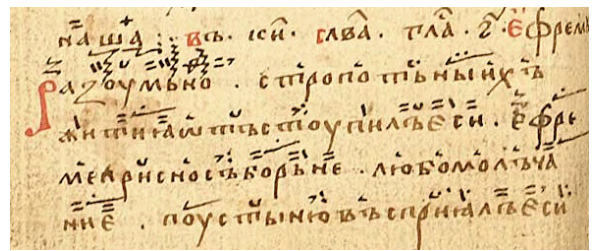 наша : въ ки҃ · слва · гла · г҃ · Ефремъ
Разоумьно · стропотьныихъ
житиꙗ ѿтъстоупилъ Еси · Ефре
ме крисносъборьне · любомолъча
ниЕ · поустыню въсприꙗлъ Еси